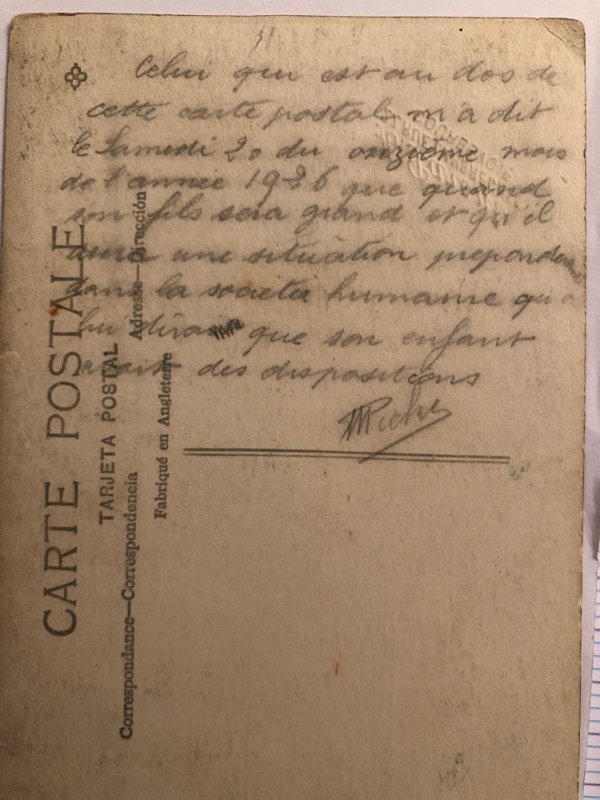 Celui qui est au dos de
cette carte postale m'a dit
le Samedi 20 du onzième mois
de l'année 1926 que quand
son fils sera grand et qu'il
aura une situation preponderante
dans la societé humaine qu'
lui dira que son enfant
avait des dispositions
CARTE POSTALE
TARJETA POSTAL
Correspondance—Correspondencia
Adresse—Dirección
Fabriqué en Angleterre